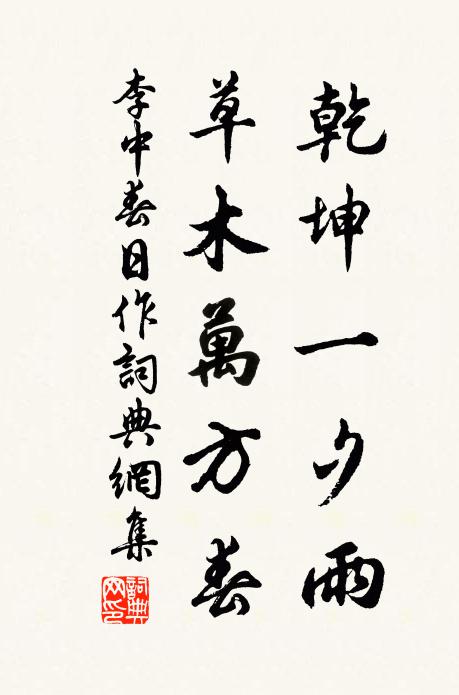 乾坤一夕雨
草木萬方春
李中春日作詞典網集
詞典網印